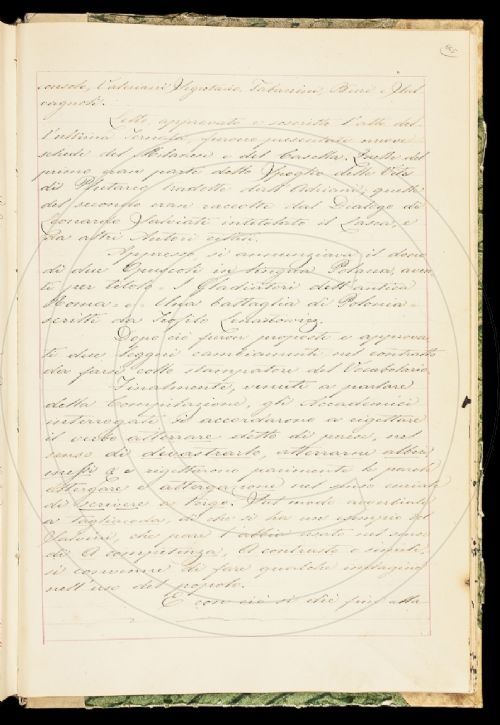 console, Calviani Vigo
cagnoli.
Letto, approvato e soscritto l'atto del-
l'ultima Tornata, furono presentate nuove
schede del Melandri e del Casella. Quelle del
primo eran parte dello Spoglio delle Vite
di Plutarco tradotte dall'Adriani; quelle
del secondo eran raccolte dal Dialogo di
Leonardo Salviati intitolato il Lasca, e
da altri Autori citati.
Appresso, si annunziava il dono
di due Opuscoli in lingua Polacca, aven-
ti per titolo = I Gladiatori dell'antica
Roma = e = Una battaglia di Polonia =
scritti da Teofilo
Dopo ciò furon proposti e approva-
ti due leggeri cambiamenti nel contratto
da farsi collo stampatore del Vocabolario.
Finalmente, venuti a parlare
della Compilazione, gli Accademici
interrogati si accordarono a rigettare
il verbo atterrare detto di paese, nel
senso di devastarlo, atterrarne alberi,
messi e rigettarono parimente le parole
attergare e attergazione nel senso
di scrivere a tergo. Sul modo avverbiale
a tagliacoda, di che si ha un esempio del
Salvini, che pare l'abbia usato nel senso
di A competenza, A contrasto e simili,
si convenne di fare qualche indagine
nell'uso del popolo.
E con ciò si diè fine alla